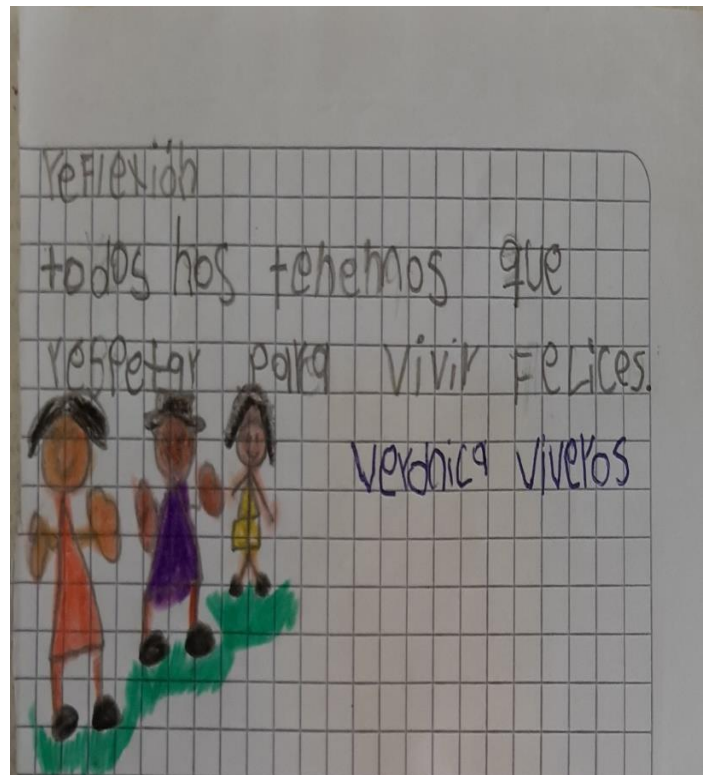 reflexión
todos nos tenemos que
respetar para vivir Felices.
veronica viveros